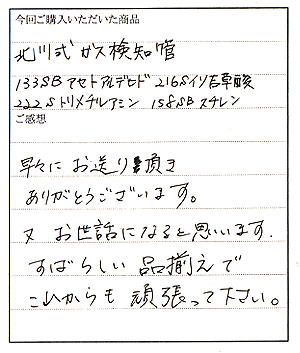 今回ご購入いただいた商品
北川式ガス検知管
133SBアセトアルデヒド 216Sイソ吉草酸
222Sトリメチルアミン 158SBスチレン
ご感想
早々にお送り頂き
ありがとうございます。
又 お世話になると思います.
すばらしい品揃えで
これからも頑張って下さい。